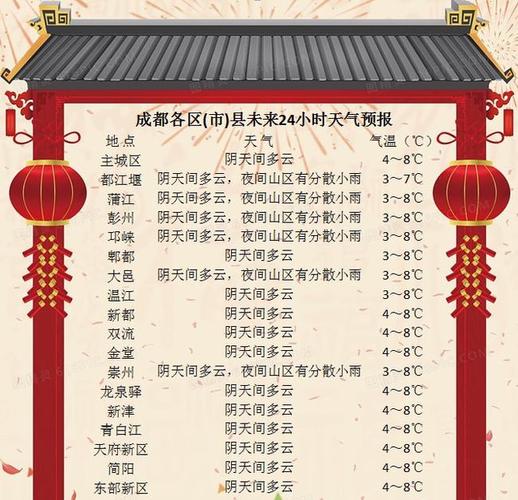 成都各区(市)县未来24小时天气预报
地点 天气 气温（℃）
主城区 阴天间多云 4～8℃
都江堰 阴天间多云，夜间山区有分散小雨 3～7℃
蒲江 阴天间多云，夜间山区有分散小雨 3～8℃
彭州 阴天间多云，夜间山区有分散小雨 3～8℃
邛崃 阴天间多云，夜间山区有分散小雨 3～8℃
郫都 阴天间多云 3～8℃
大邑 阴天间多云，夜间山区有分散小雨 3～8℃
温江 阴天间多云 3～8℃
新都 阴天间多云 4～8℃
双流 阴天间多云 4～8℃
金堂 阴天间多云 4～8℃
崇州 阴天间多云，夜间山区有分散小雨 3～8℃
龙泉驿 阴天间多云 4～8℃
新津 阴天间多云 4～8℃
青白江 阴天间多云 4～8℃
天府新区 阴天间多云 4～8℃
简阳 阴天间多云 4～8℃
东部新区 阴天间多云 4～8℃